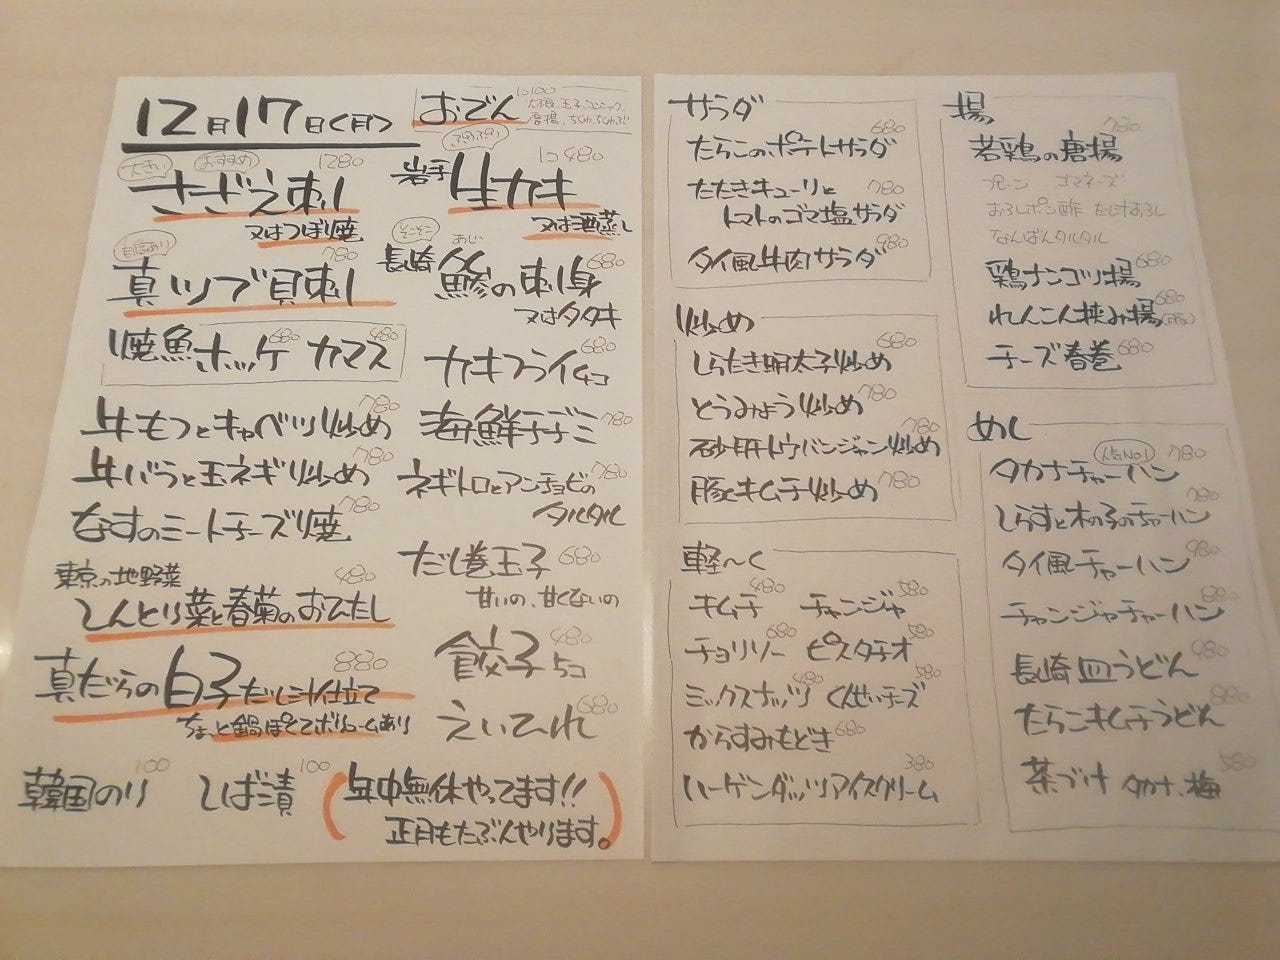 12月17日(月)
おでん 1コ100
大根、玉子、コンニャク、
大きい おすすめ 1280
さざえ刺し
又はつぼ焼
岩手 生カキ 1コ480
又は酒蒸し
自信あり 780
真ツブ貝刺し
そこそこ あじ
長崎 鯵の刺身 680
又はタタキ
焼魚 ホッケ 680 カマス 480
カキフライ 680
牛もつとキャベツ炒め 780
海鮮チヂミ 780
牛バラと玉ネギ炒め 780
ネギトロとアンチョビの 780
タルタル
なすのミートチーズ焼 780
だし巻玉子 680
甘いの、甘くないの
東京の地野菜 480
しんとり菜と春菊のおひたし
餃子 5コ 480
真だらの白子だし汁仕立て 880
ちょっと鍋ぽくてボリュームあり
えいひれ 680
韓国のり 100 しば漬 100
年中無休やってます!!
正月もたぶんやります。
サラダ
たらこのポテトサラダ 680
たたきキューリと 780
トマトのゴマ塩サラダ
タイ風牛肉サラダ 980
炒め
しらたき明太子炒め 680
とうみょう炒め 780
砂肝トウバンジャン炒め 780
豚とキムチ炒め 780
軽〜く
キムチ 480 チャンジャ 580
チョリソー 680 ピスタチオ 580
ミックスナッツ 480 くんせいチーズ 580
からすみもどき 680
ハーゲンダッツアイスクリーム 380
揚
若鶏の唐揚 780
プレーン ゴマネーズ
おろしポン酢 たけおろし
なんばんタルタル
鶏ナンコツ揚 680
れんこん挟み揚 680
チーズ春巻 680
めし
人気No.1
タカナチャーハン 780
しらすと木の子のチャーハン 780
タイ風チャーハン 980
チャンジャチャーハン 880
長崎皿うどん 980
たらこキムチうどん 880
茶づけ タカナ、梅 580